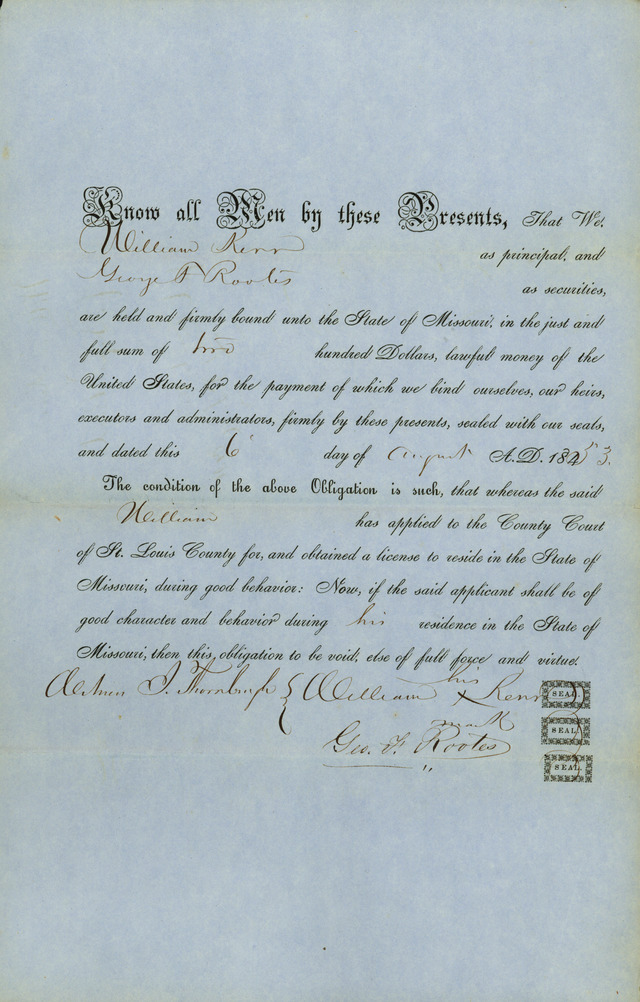 Know all Men by these Presents, That We.
William Kerr as principal, and
George F Rootes as securities,
are held and firmly bound unto the State of Missouri, in the just and
full sum of two hundred Dollars, lawful money of the
United States, for the payment of which we bind ourselves, our heirs,
executors and administrators, firmly by these presents, sealed with our seals,
and dated this 6 day of august A.D. 1853.
The condition of the above Obligation is such, that whereas the said
William has applied to the County Court
of St. Louis County for, and obtained a license to reside in the State of
Missouri, during good behavior: Now, if the said applicant shall be of
good character and behavior during his residence in the State of
Missouri, then this, obligation to be void, else of full force and virtue.
his
J. Thornburgh William x Kerr SEAL
mark
Geo. F. Rootes SEAL
SEAL